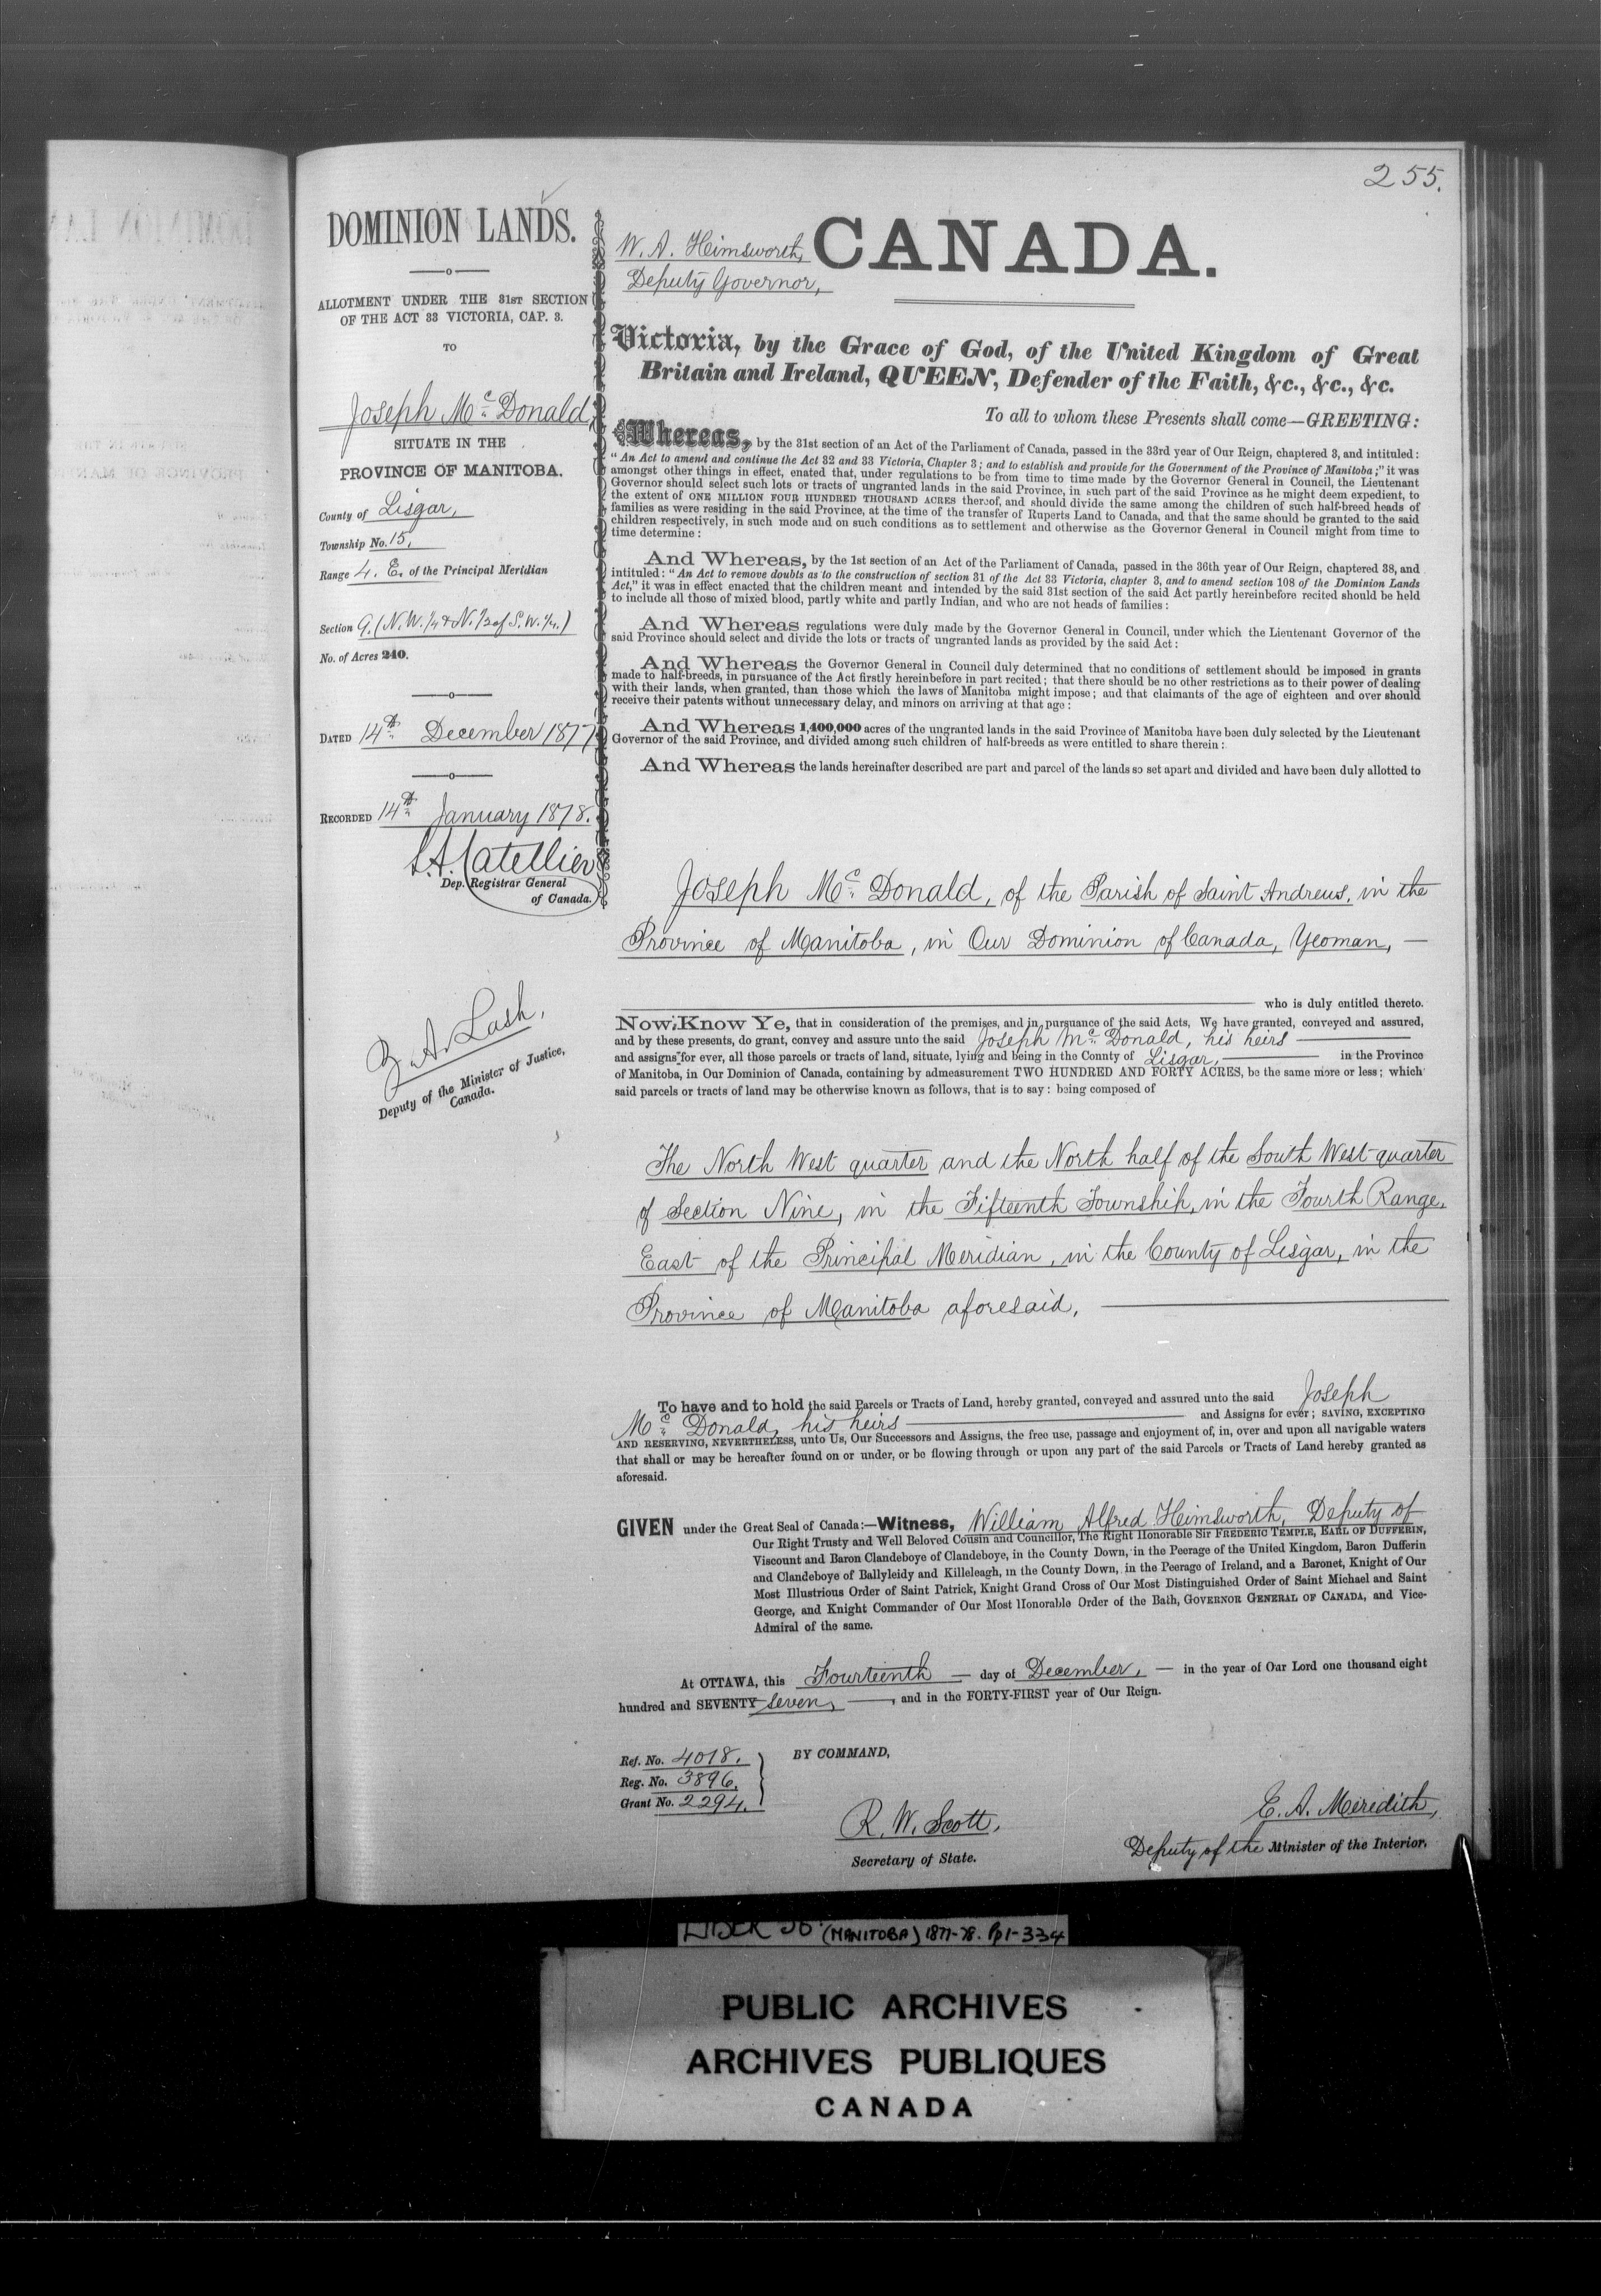 255.
DOMINION LANDS.
ALLOTMENT UNDER THE 31ST SECTION
OF THE ACT 33 VICTORIA, CAP. 3.
TO
Joseph Mc Donald,
SITUATE IN THE
PROVINCE OF MANITOBA.
County of Lisgar,
Township No. 15,
Range 4. E. of the Principal Meridian
Section 9. (N.W. 1/4 & N. 1/2 of S.W. 1/4.)
No. of Acres 240.
DATED 14th December 1877
RECORDED 14th January 1878.
L.A. Catellier
Dep. Registrar General
of Canada.
Z. A. Lash,
Deputy of the Minister of Justice,
Canada.
W. A. Heimsworth,
Deputy Governor,
CANADA.
Victoria, by the Grace of God, of the United Kingdom of Great
Britain and Ireland, QUEEN, Defender of the Faith, &c., &c., &c.
To all to whom these Presents shall come—GREETING:
Whereas, by the 31st section of an Act of the Parliament of Canada, passed in the 33rd year of Our Reign, chaptered 3, and intituled:
"An Act to amend and continue the Act 32 and 33 Victoria, Chapter 3; and to establish and provide for the Government of the Province of Manitoba;" it was
amongst other things in effect, enated that, under regulations to be from time to time made by the Governor General in Council, the Lieutenant
Governor should select such lots or tracts of ungranted lands in the said Province, in such part of the said Province as he might deem expedient, to
the extent of ONE MILLION FOUR HUNDRED THOUSAND ACRES thereof, and should divide the same among the children of such half-breed heads of
families as were residing in the said Province, at the time of the transfer of Ruperts Land to Canada, and that the same should be granted to the said
children respectively, in such mode and on such conditions as to settlement and otherwise as the Governor General in Council might from time to
time determine:
And Whereas, by the 1st section of an Act of the Parliament of Canada, passed in the 36th year of Our Reign, chaptered 38, and
intituled: "An Act to remove doubts as to the construction of section 31 of the Act 33 Victoria, chapter 3, and to amend section 108 of the Dominion Lands
Act," it was in effect enacted that the children meant and intended by the said 31st section of the said Act partly hereinbefore recited should be held
to include all those of mixed blood, partly white and partly Indian, and who are not heads of families:
And Whereas regulations were duly made by the Governor General in Council, under which the Lieutenant Governor of the
said Province should select and divide the lots or tracts of ungranted lands as provided by the said Act:
And Whereas the Governor General in Council duly determined that no conditions of settlement should be imposed in grants
made to half-breeds, in pursuance of the Act firstly hereinbefore in part recited; that there should be no other restrictions as to their power of dealing
with their lands, when granted, than those which the laws of Manitoba might impose; and that claimants of the age of eighteen and over should
receive their patents without unnecessary delay, and minors on arriving at that age:
And Whereas 1,400,000 acres of the ungranted lands in the said Province of Manitoba have been duly selected by the Lieutenant
Governor of the said Province, and divided among such children of half-breeds as were entitled to share therein:
And Whereas the lands hereinafter described are part and parcel of the lands so set apart and divided and have been duly allotted to
Joseph Mc Donald, of the Parish of Saint Andrews, in the
Province of Manitoba, in Our Dominion of Canada, Yeoman, —
who is duly entitled thereto.
Now Know Ye, that in consideration of the premises, and in pursuance of the said Acts, We have granted, conveyed and assured,
and by these presents, do grant, convey and assure unto the said Joseph Mc Donald, his heirs
and assigns for ever, all those parcels or tracts of land, situate, lying and being in the County of Lisgar, in the Province
of Manitoba, in Our Dominion of Canada, containing by admeasurement TWO HUNDRED AND FORTY ACRES, be the same more or less; which
said parcels or tracts of land may be otherwise known as follows, that is to say: being composed of
The North West quarter and the North half of the South West quarter
of Section Nine, in the Fifteenth Township, in the Fourth Range,
East of the Principal Meridian, in the County of Lisgar, in the
Province of Manitoba aforesaid,
To have and to hold the said Parcels or Tracts of Land, hereby granted, conveyed and assured unto the said Joseph
Mc Donald, his heirs and Assigns for ever; SAVING, EXCEPTING
AND RESERVING, NEVERTHELESS, unto Us, Our Successors and Assigns, the free use, passage and enjoyment of, in, over and upon all navigable waters
that shall or may be hereafter found on or under, or be flowing through or upon any part of the said Parcels or Tracts of Land hereby granted as
aforesaid.
GIVEN under the Great Seal of Canada:—Witness, William Alfred Heimsworth, Deputy of
Our Right Trusty and Well Beloved Cousin and Councillor, The Right Honorable Sir FREDERIC TEMPLE, EARL OF DUFFERIN,
Viscount and Baron Clandeboye of Clandeboye, in the County Down, in the Peerage of the United Kingdom, Baron Dufferin
and Clandeboye of Ballyleidy and Killeleagh, in the County Down, in the Peerage of Ireland, and a Baronet, Knight of Our
Most Illustrious Order of Saint Patrick, Knight Grand Cross of Our Most Distinguished Order of Saint Michael and Saint
George, and Knight Commander of Our Most Honorable Order of the Bath, GOVERNOR GENERAL OF CANADA, and Vice-
Admiral of the same.
At OTTAWA, this Fourteenth — day of December, — in the year of Our Lord one thousand eight
hundred and SEVENTY Seven, —, and in the FORTY-FIRST year of Our Reign.
Ref. No. 4018.
Reg. No. 3896.
Grant No. 2294.
BY COMMAND,
R. W. Scott,
Secretary of State.
E. A. Meredith,
Deputy of the Minister of the Interior.
(MANITOBA) 1877-78. Pp1-334
PUBLIC ARCHIVES
ARCHIVES PUBLIQUES
CANADA